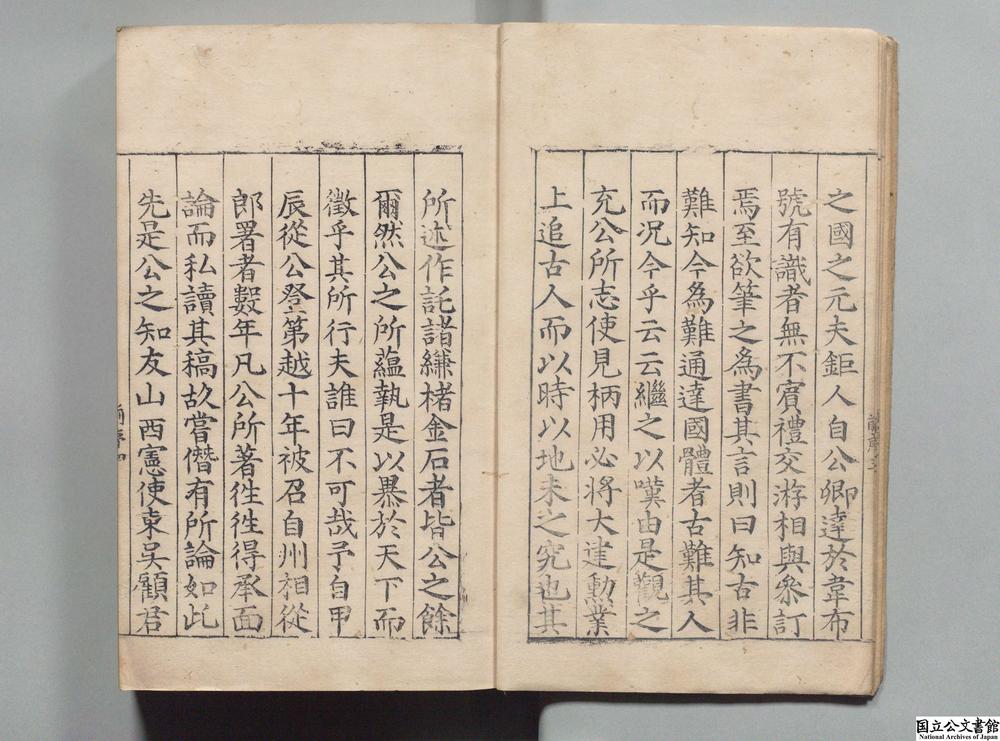 之國之元夫鉅人自公卿達於韋布
號有識者無不賓禮交游相與叅訂
焉至欲筆之為書其言則曰知古非
難知今為難通達國體者古難其人
而況今乎云云繼之以嘆由是觀之
充公所志使見柄用必將大建勲業
上追古人而以時以地未之究也其
所述作託諸縑楮金石者皆公之餘
爾然公之所蘊孰是以暴於天下而
徵乎其所行夫誰曰不可哉予自甲
辰從公登第越十年被召自州相從
郎署者數年凡公所著徃徃得承面
論而私讀其稿故嘗僭有所論如此
先是公之知友山西憲使東吳顧君
国立公文書館
National Archives of Japan